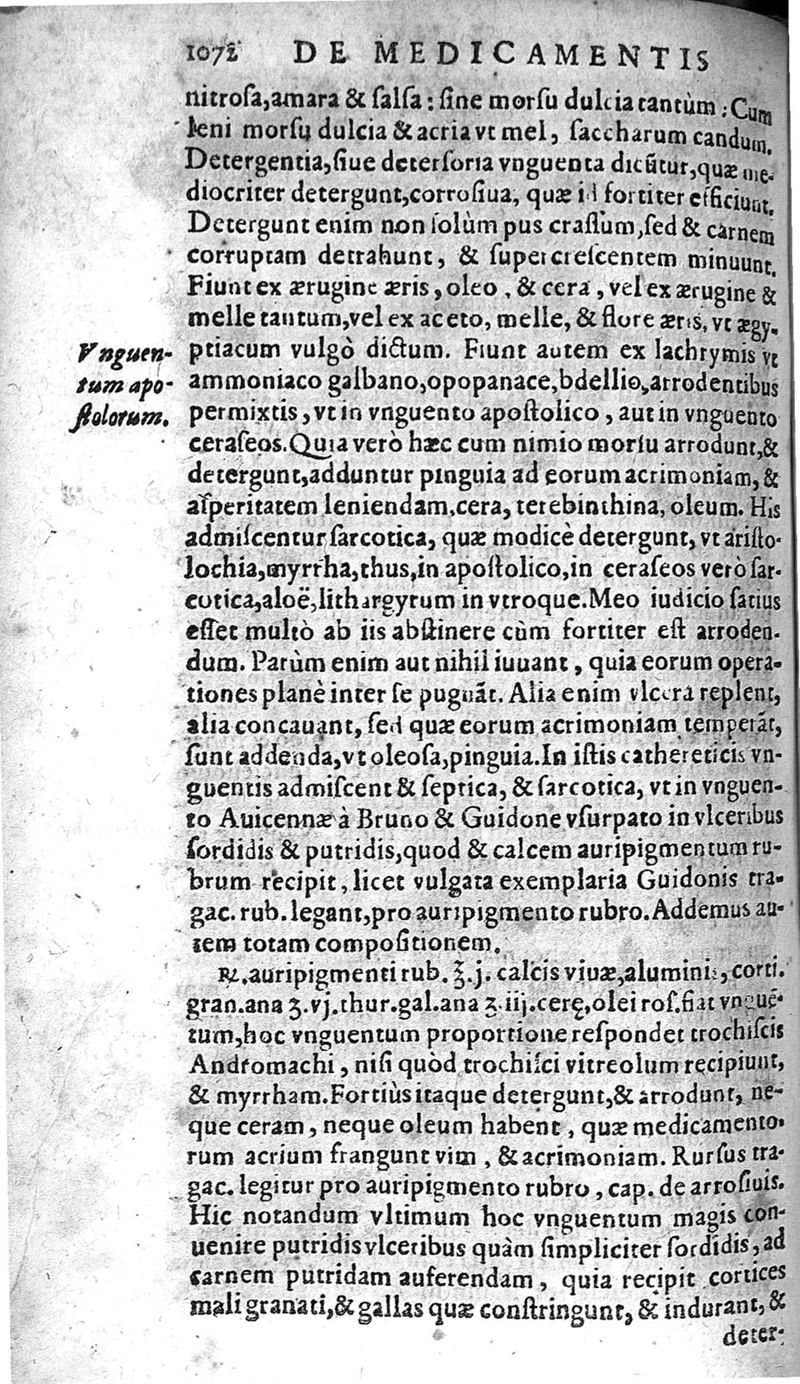 1072 DE MEDICAMENTIS
nitroſa,amara & ſalſa : ſine morſu dulcia tantùm : Cum
leni morſu dulcia & acria vt mel, ſaccharum candum.
Detergentia,ſiue deterſoria vnguenta dicũtur,quæ me-
diocriter detergunt,corroſiua, quæ id fortiter efficiunt.
Detergunt enim non ſolùm pus craſſum,ſed & carnem
corruptam detrahunt, & ſupercreſcentem minuunt.
Fiunt ex ærugine æris, oleo , & cera , vel ex ærugine &
melle tantum,vel ex aceto, melle, & flore æris, vt ægy-
Vnguen-
tum apo-
ſtolorum.
ptiacum vulgò dictum. Fiunt autem ex lachrymis vt
ammoniaco galbano,opopanace,bdellio,arrodentibus
permixtis, vt in vnguento apoſtolico , aut in vnguento
ceraſeos.Quia verò hæc cum nimio morſu arrodunt,&
detergunt,adduntur pinguia ad eorum acrimoniam, &
aſperitatem leniendam,cera, terebinthina, oleum. His
admiſcentur ſarcotica, quæ modicè detergunt, vt ariſto-
lochia,myrrha,thus,in apoſtolico,in ceraſeos verò ſar-
cotica,aloë,lithargyrum in vtroque.Meo iudicio ſatius
eſſet multò ab iis abſtinere cùm fortiter eſt arroden-
dum. Parùm enim aut nihil iuuant , quia eorum opera-
tiones planè inter ſe pugnãt. Alia enim vlcera replent,
alia concauant, ſed quæ eorum acrimoniam temperãt,
ſunt addenda,vt oleoſa,pinguia.In iſtis cathereticis vn-
guentis admiſcent & ſeptica, & ſarcotica, vt in vnguen-
to Auicennæ à Bruno & Guidone vſurpato in vlceribus
ſordidis & putridis,quod & calcem auripigmentum ru-
brum recipit, licet vulgata exemplaria Guidonis tra-
gac. rub. legant,pro auripigmento rubro.Addemus au-
tem totam compoſitionem.
℞.auripigmenti rub. ℥.j. calcis viuæ,aluminis,corti.
gran.ana ʒ.vj.thur.gal.ana ʒ.iij.cerę,olei roſ.fiat vnguẽ-
tum,hoc vnguentum proportione reſpondet trochiſcis
Andromachi , niſi quòd trochiſci vitreolum recipiunt,
& myrrham.Fortiùs itaque detergunt,& arrodunt, ne-
que ceram , neque oleum habent , quæ medicamento-
rum acrium frangunt vim , & acrimoniam. Rurſus tra-
gac. legitur pro auripigmento rubro , cap. de arroſiuis.
Hic notandum vltimum hoc vnguentum magis con-
uenire putridis vlceribus quàm ſimpliciter ſordidis, ad
carnem putridam auferendam , quia recipit cortices
mali granati,& gallas quæ conſtringunt, & indurant, &
deter-